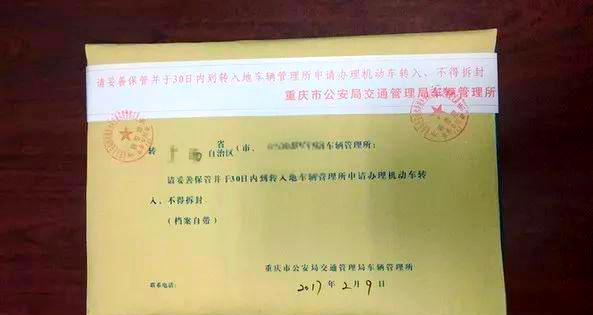 请妥善保管并于30日内到转入地车辆管理所申请办理机动车转入、不得拆封
重庆市公安局交通管理局车辆管理所
省
转 自治区(市、 车辆管理所:
请妥善保管并于30日内到转入地车辆管理所申请办理机动车转
入、不得拆封
(档案自带)
重庆市公安局交通管理局车辆管理所
联系电话: 2017年2月9日